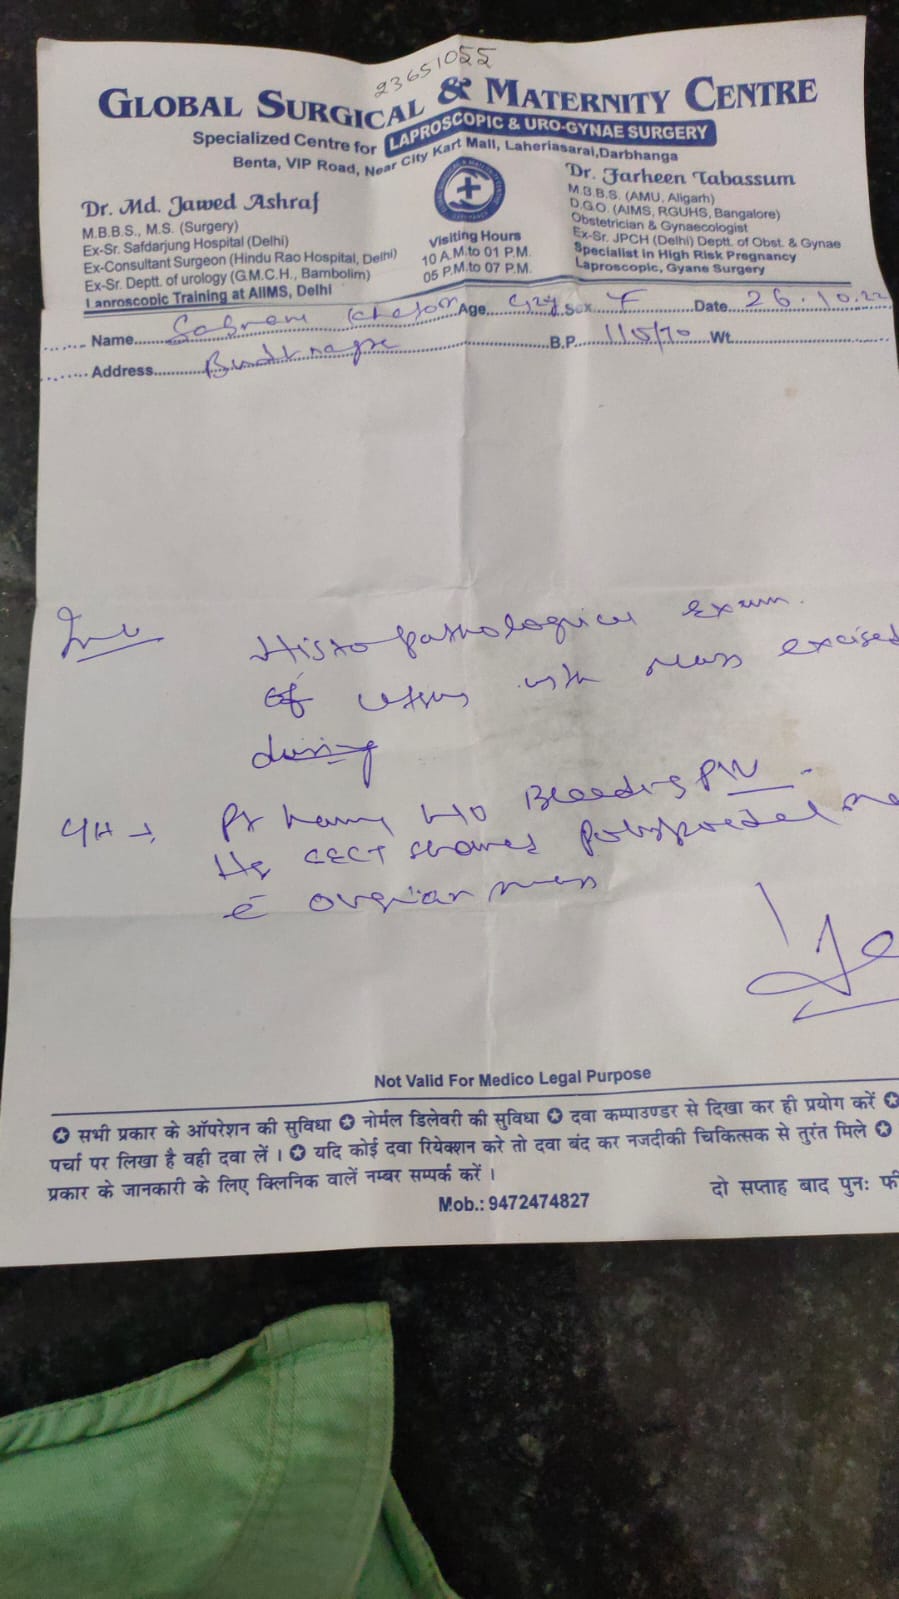 23651055
GLOBAL SURGICAL & MATERNITY CENTRE
Specialized Centre for LAPROSCOPIC & URO-GYNAE SURGERY
Benta, VIP Road, Near City Kart Mall, Laheriasarai,Darbhanga
Dr. Md. Jawed Ashraf
M.B.B.S., M.S. (Surgery)
Ex-Sr. Safdarjung Hospital (Delhi)
Ex-Consultant Surgeon (Hindu Rao Hospital, Delhi)
Ex-Sr. Deptt. of urology (G.M.C.H., Bambolim)
Laproscopic Training at AIIMS, Delhi
Visiting Hours
10 A.M.to 01 P.M.
05 P.M.to 07 P.M.
Dr. Farheen Tabassum
M.B.B.S. (AMU, Aligarh)
D.G.O. (AIMS, RGUHS, Bangalore)
Obstetrician & Gynaecologist
Ex-Sr. JPCH (Delhi) Deptt. of Obst. & Gynae
Specialist in High Risk Pregnancy
Laproscopic, Gyane Surgery
Name Khatoon Age Sex F Date 26.10.22
Address B.P. 115/70 Wt.
Histopathological exam.
of with mass excised
during
Pt having H/O Bleeding P/V
CECT showed
c̄ ovarian mass
Not Valid For Medico Legal Purpose
सभी प्रकार के ऑपरेशन की सुविधा नोर्मल डिलेवरी की सुविधा दवा कम्पाउण्डर से दिखा कर ही प्रयोग करें
पर्चा पर लिखा है वही दवा लें । यदि कोई दवा रियेक्शन करे तो दवा बंद कर नजदीकी चिकित्सक से तुरंत मिले
प्रकार के जानकारी के लिए क्लिनिक वालें नम्बर सम्पर्क करें ।
दो सप्ताह बाद पुनः
Mob.: 9472474827